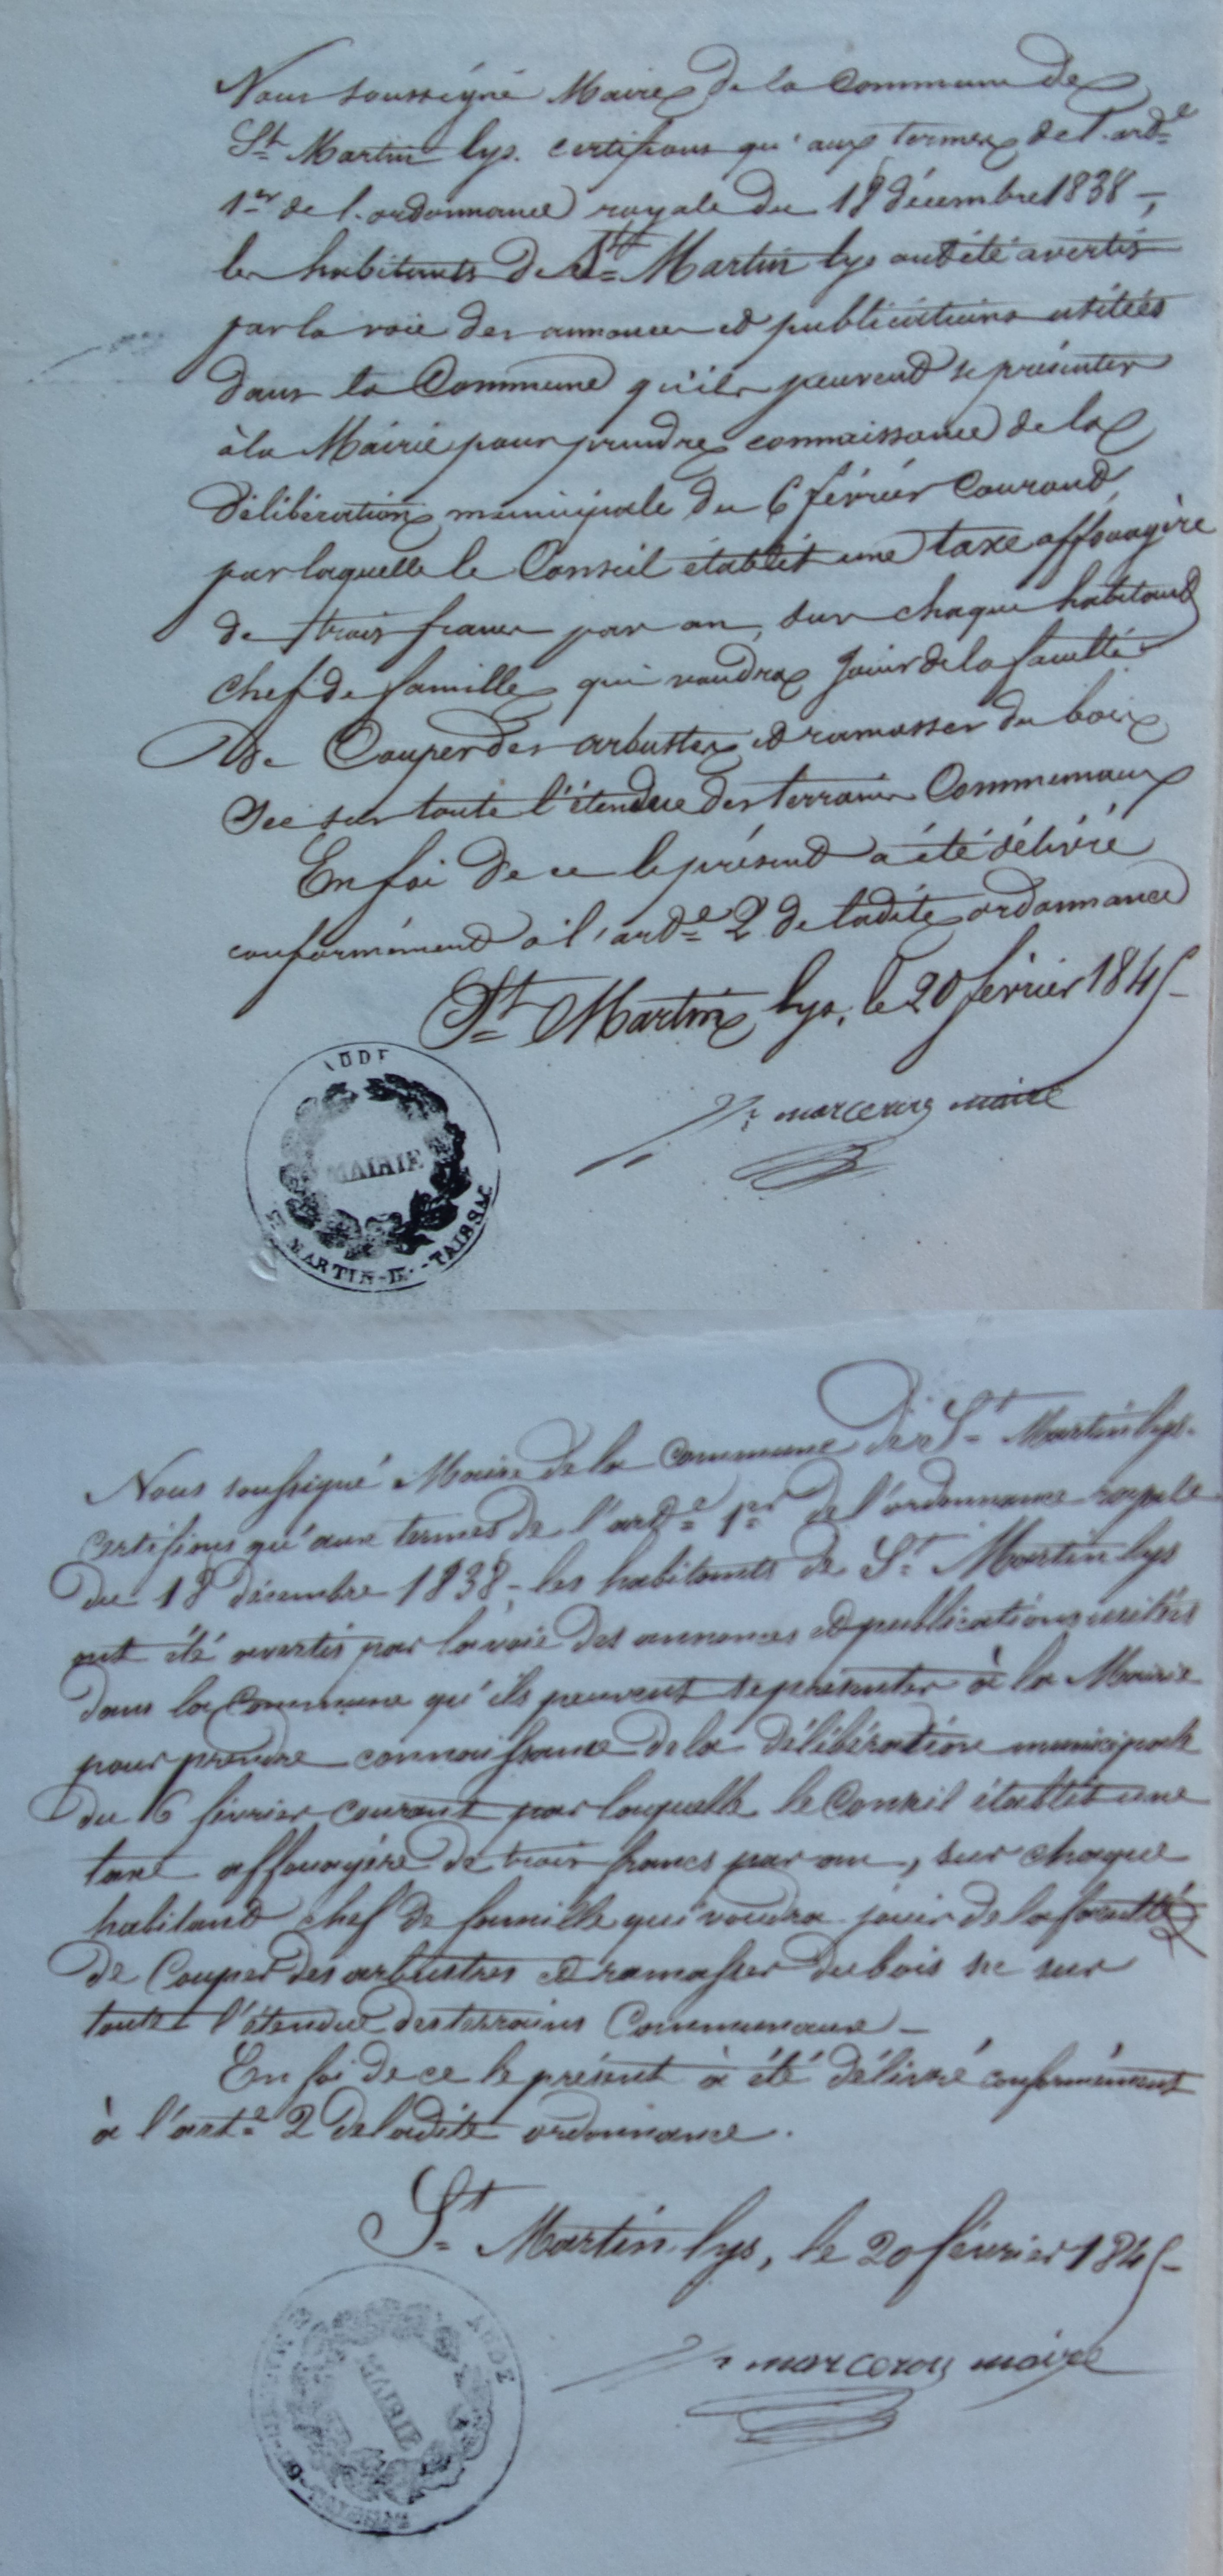 Nous soussigné Maire de la Commune de
St Martin lys. certifions qu'aux termes de l'arde
1er de l'ordonnance royale du 18 décembre 1838 -,
les habitants de St Martin lys ont été avertis
par la voie des annonces et publications usitées
dans la Commune qu'ils peuvent se présenter
à la Mairie pour prendre connaissance de la
délibération municipale du 6 février Courant
par laquelle le Conseil établit une taxe affouagère
de trois francs par an, sur chaque habitant
chef de famille qui voudra Jouir de la faculté
de Couper des arbustes et ramasser du bois
sec sur toute l'étendue des terrains Communaux
En foi de ce le présent a été délivré
conformément à l'arde 2 de ladite ordonnance
St Martin lys, le 20 février 1845-
marcerou maire
AUDE
MAIRIE
St MARTIN-DE-TAISSAC
Nous soussigné Maire de la Commune de St Martin lys.
certifions qu'aux termes de l'arde 1er de l'ordonnance royale
du 18 décembre 1838, les habitants de St Martin lys
ont été avertis par la voie des annonces et publications usitées
dans la Commune qu'ils peuvent se présenter à la Mairie
pour prendre connaissance de la délibération municipale
du 6 février courant par laquelle le Conseil établit une
taxe affouagère de trois francs par an, sur chaque
habitant chef de famille qui voudra jouir de la faculté
de Couper des arbustres et ramasser du bois sec sur
toute l'étendue des terrains Communaux -
En foi de ce le présent à été délivré conformément
à l'arte 2 de ladite ordonnance.
St Martin lys, le 20 février 1845-
marcerou maire
AUDE
MAIRIE